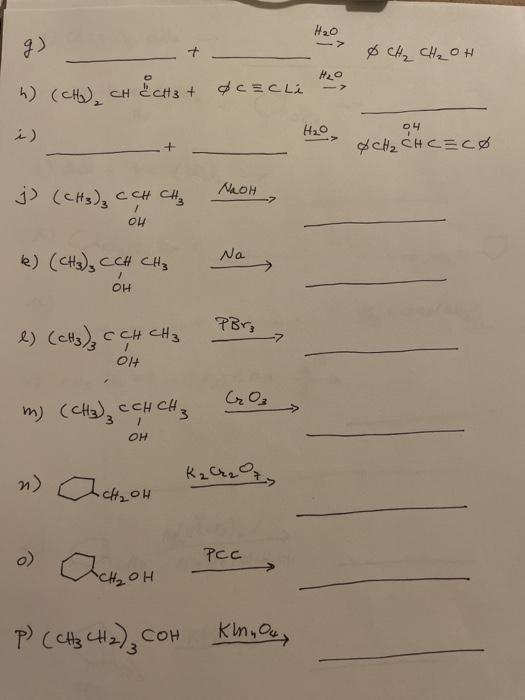 g) ________ + ________ H2O → ø CH2 CH2OH
h) (CH3)2 CH C(=O) CH3 + ø C≡CLi H2O → ________
i) ________ + ________ H2O → øCH2 CH(OH) C≡Cø
j) (CH3)3 CCH(OH) CH3 NaOH → ________
k) (CH3)3 CCH(OH) CH3 Na → ________
l) (CH3)3 CCH(OH) CH3 PBr3 → ________
m) (CH3)3 CCH(OH) CH3 CrO3 → ________
n) CH2OH K2Cr2O7 → ________
o) CH2OH PCC → ________
p) (CH3CH2)3 COH KMnO4 → ________